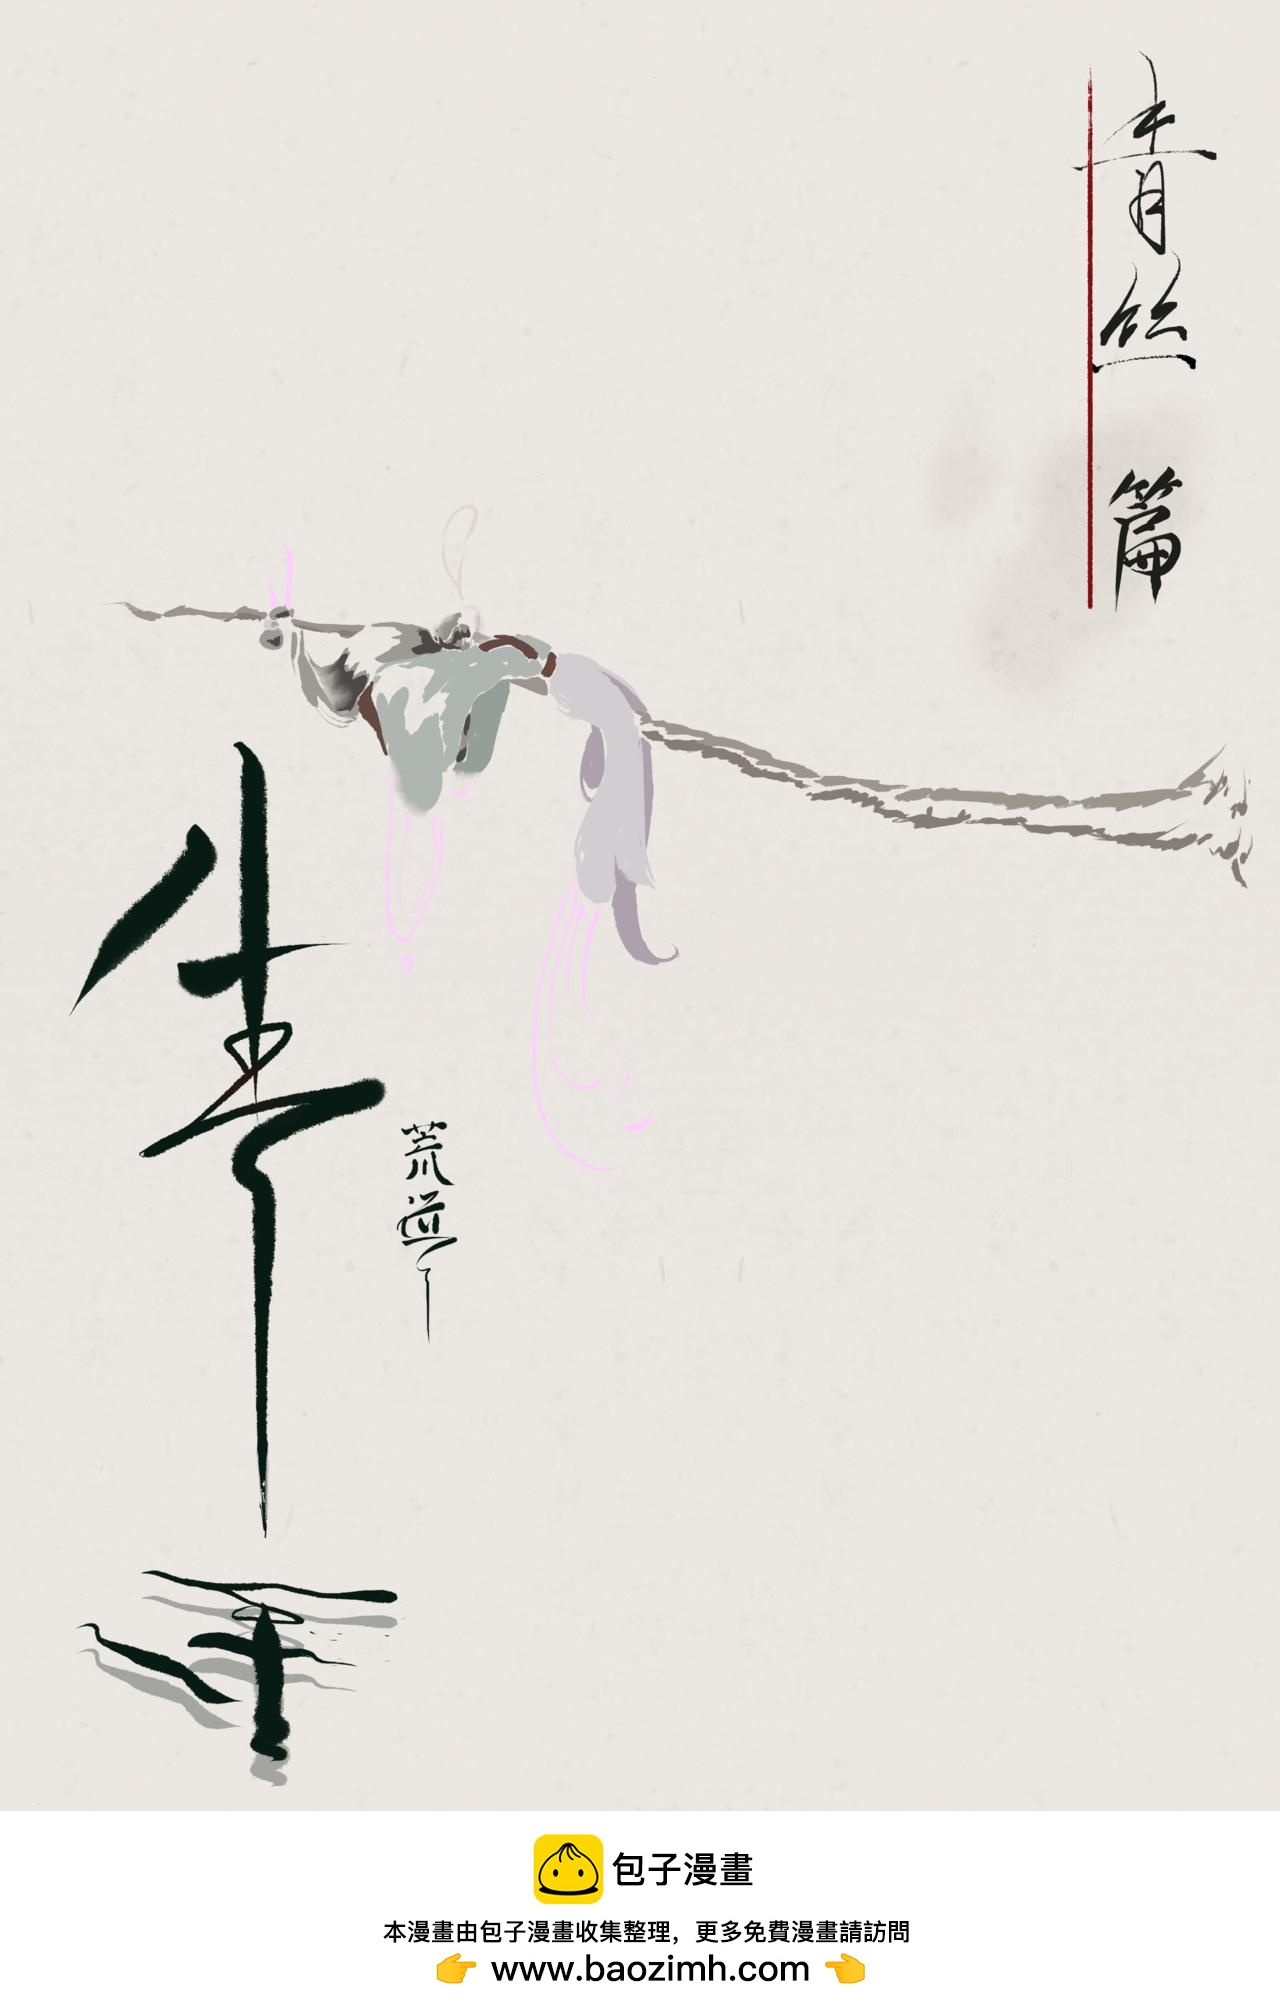 青丝篇
荒道
包子漫畫
本漫畫由包子漫畫收集整理，更多免費漫畫請訪問
👉 www.baozimh.com 👈